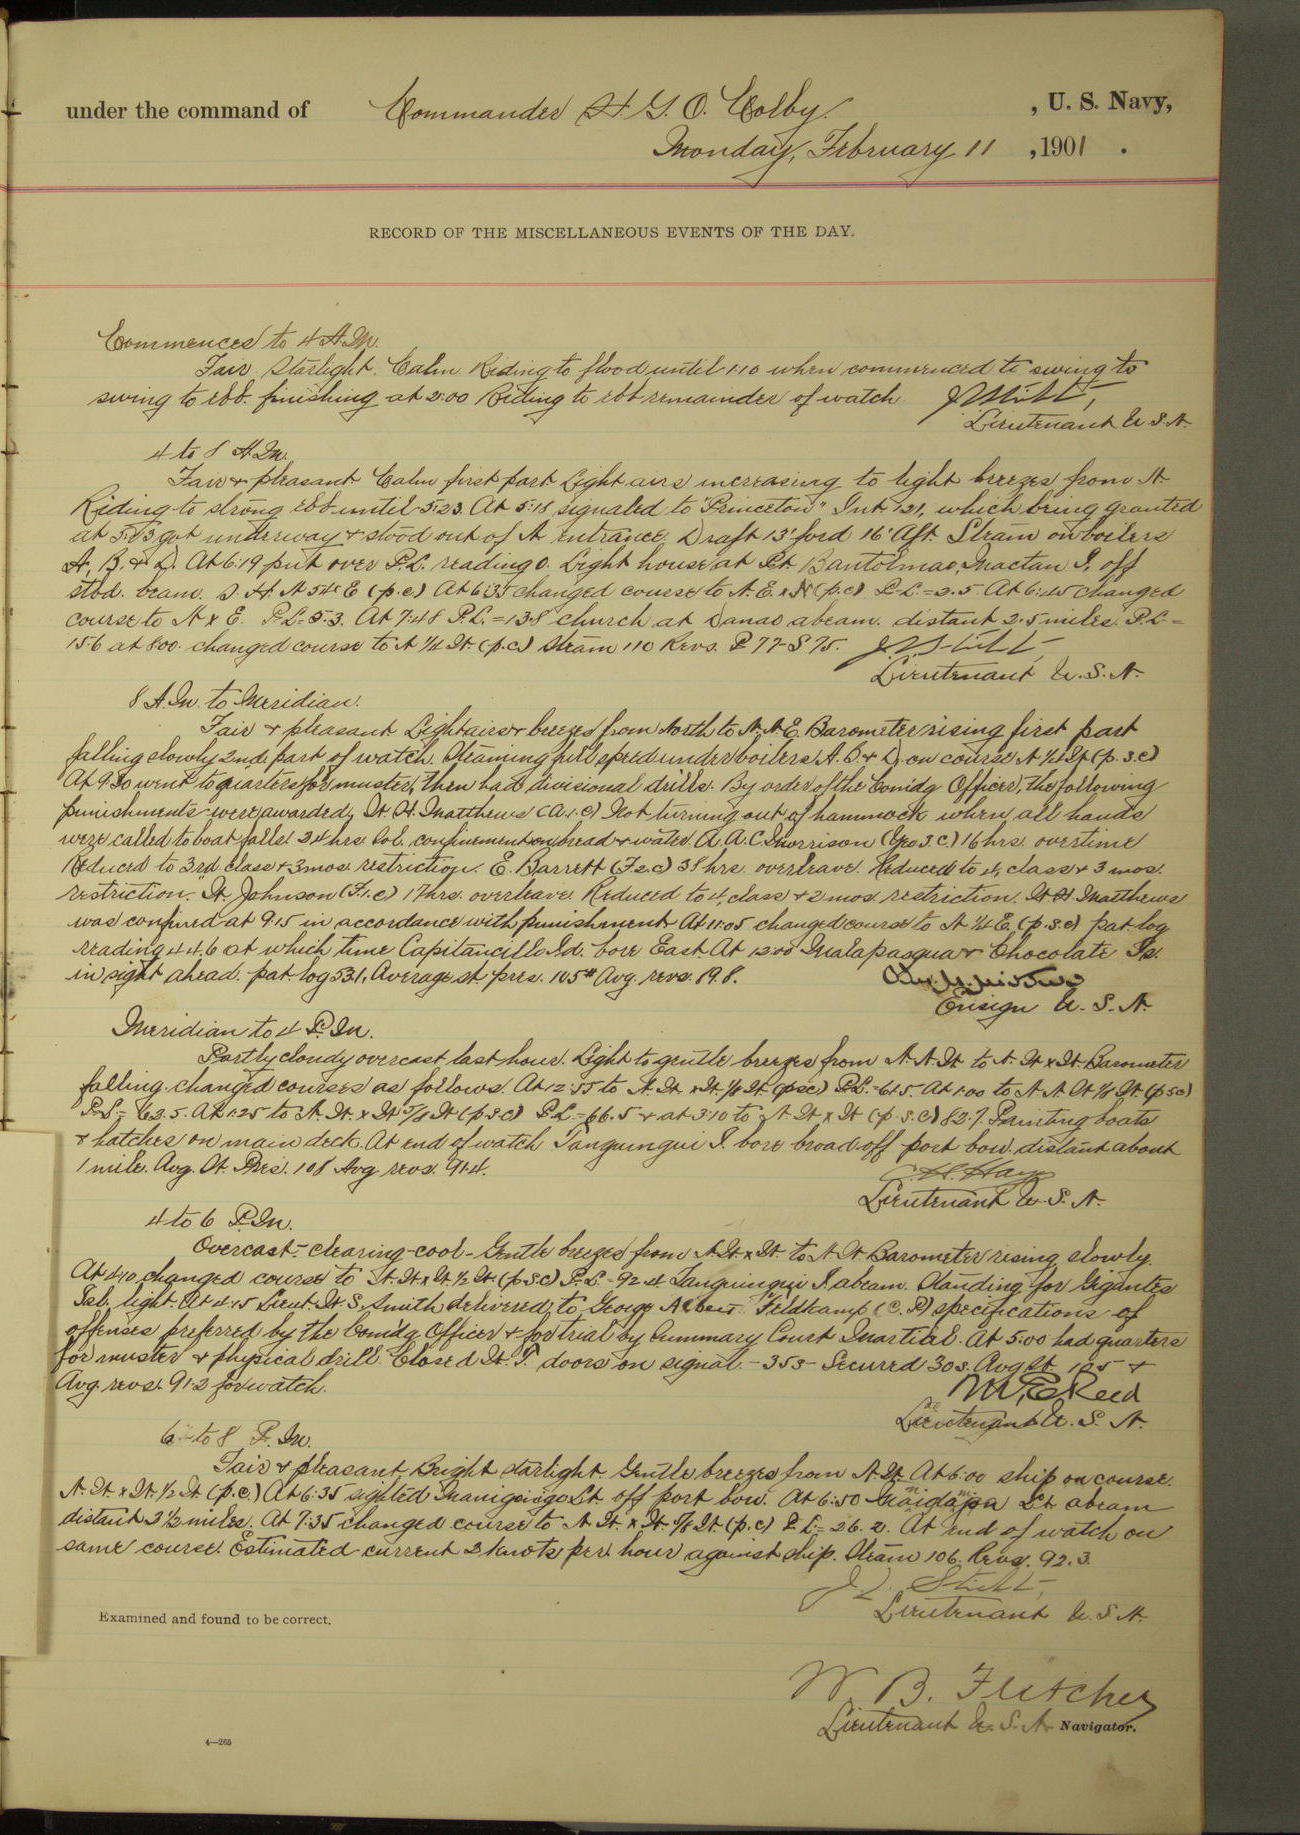 under the command of Commander H. G. O. Colby. , U. S. Navy,
Monday, February 11 , 1901 .
RECORD OF THE MISCELLANEOUS EVENTS OF THE DAY.
Commences to 4 A.M.
Fair. Starlight. Calm. Riding to flood until 1:10 when commenced to swing to
swing to ebb. finishing at 2:00 Riding to ebb remainder of watch.
Lieutenant U.S.N.
4 to 8 A.M.
Fair & pleasant. Calm first part. Light airs increasing to light breezes from N.
Riding to strong ebb until 5:23. At 5:15 signaled to "Princeton" Int. 721, which being granted
at got underway & stood out of N. entrance. Draft 13' for'd 16' Aft. Steam on boilers
A, B. & D. At 6:19 put over P.L. reading 0. Light house at Pt. Bantolmao, Mactan I, off
stbd. beam. N 54 E (p.c) At 6:35 changed course to N.E. x N (p.c) P.L.=2.5. At 6:45 changed
course to N x E. P.L=5.3. At 7:48 P.L.=13.8 church at Danao abeam. distant 2.5 miles. P.L=
15.6 at 8:00. changed course to N 1/4 W. (p.c.) Steam 110 Revs. P 77-S 75.
Lieutenant U.S.N.
8 A.M. to Meridian.
Fair & pleasant Light airs & breezes from North to N.N.E. Barometer rising first part
falling slowly 2nd part of watch. Steaming full speed under boilers A. B & D on course N 1/4 W (p.s.c)
At 9:30 went to quarters for muster, then had divisional drills. By order of the Com'dg Officer, the following
punishments were awarded, W. H. Matthews (A.1.C) Not turning out of hammock when all hands
were called to boat falls. 24 hrs. Sol. confinement on bread & water. A. A. C. Morrison 16 hrs. overtime
Reduced to 3rd class & 3 mos. restriction. E. Barrett (F.2.c) 38 hrs. overleave. Reduced to 4, class & 3 mos.
restriction. W. Johnson (F.1.c) 17 hrs. overleave. Reduced to 4, class & 2 mos. restriction. W. H. Matthews
was confined at 9:15 in accordance with punishment. At 11:05 changed course to N 1/4 E. (p.s.c) pat. log
reading 44.6 at which time Capitancillo Id. bore East. At 12:00 Malapasqua & Chocolate Is.
in sight ahead. pat. log 53.1, Average st. pres. 105# Avg. revs. 79.8.
Ensign U.S.N.
Meridian to 4 P.M.
Partly cloudy overcast last hour. Light to gentle breezes from N.N.W. to N.W x W. Barometer
falling. changed courses as follows. At 12:55 to N.W. x W. 1/8 W. (psc) P.L.=61.5. At 1:00 to N.N.W 1/8 W. (psc)
P.L.= 62.5. At 1:25 to N.W. x W 5/8 W (p.s.c) P.L.=66.5 & at 3:10 to N.W x W (p.s.c) 82.7. Painting boats
& hatches on main deck. At end of watch Tanguingui I. bore broad off port bow. distant about
1 mile. Avg. St. Pres. 108 Avg. revs. 91.4.
C. H. Hay
Lieutenant U.S.N.
4 to 6 P.M.
Overcast - clearing - cool - Gentle breezes from N.W. x W. to N.W. Barometer rising slowly.
At 4:10 changed course to N.W. x W. 1/2 W (p.s.c) P.L.=92.4 Tanguingui I. abeam. Standing for Gigantes
Isl. light. At 4:15 Lieut. W. S. Smith delivered to George Albert Feldkamp (C.P.) specifications of
offenses preferred by the Com'dg Officer & for trial by Summary Court Martial. At 5:00 had quarters
for muster & physical drill. Closed W.T. doors on signal. - 35s - Secured 30s. Avg St. 105 &
Avg. revs. 91.2 for watch.
M. E. Reed
Lieutenant U.S.N.
6 to 8 P.M.
Fair & pleasant. Bright starlight. Gentle breezes from N.W. At 6:00 ship on course.
N.W. x W. 1/2 W. (p.c.) At 6:35 sighted Manigonigo Lt. off port bow. At 6:50 Lt. abeam
distant 3 1/2 miles. At 7:35 changed course to N.W. x W. 5/8 W. (p.c) P.L.= 26.2. At end of watch on
same course. Estimated current 2 knots per hour against ship. Steam 106. Revs. 92.3.
Lieutenant U.S.N.
Examined and found to be correct.
W. B. Fletcher
Lieutenant U.S.N. Navigator.
4—265